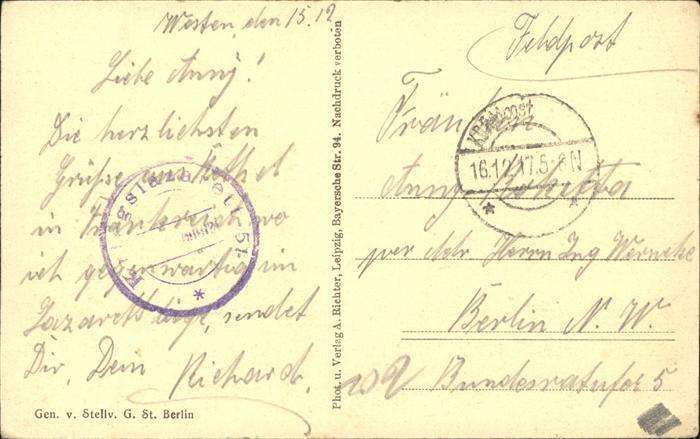 Westen, den 15.12
Liebe Anny!
Die herzlichsten
Grüsse aus Rethel
in Frankreich wo
ich gegenwärtig im
Lazarett liege, sendet
Dir, Dein Richard.
Gen. v. Stellv. G. St. Berlin
Phot. u. Verlag A. Richter, Leipzig, Bayersche Str. 94. Nachdruck verboten
Feldpost
16.12.17.5-6N
Fräulein
Anny
per Adr. Herrn Ing Wernicke
Berlin N. W.
Bundesratufer 5